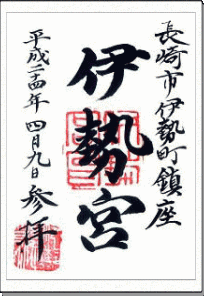 長崎市伊勢町鎮座
伊勢宮
平成二十四年四月九日参拝